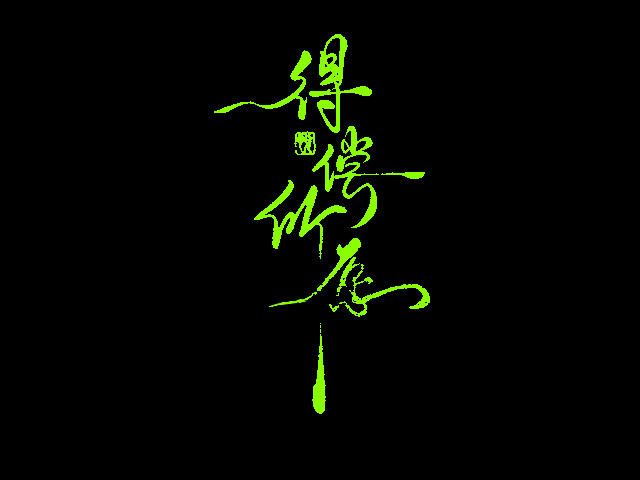 得
偿
所
愿